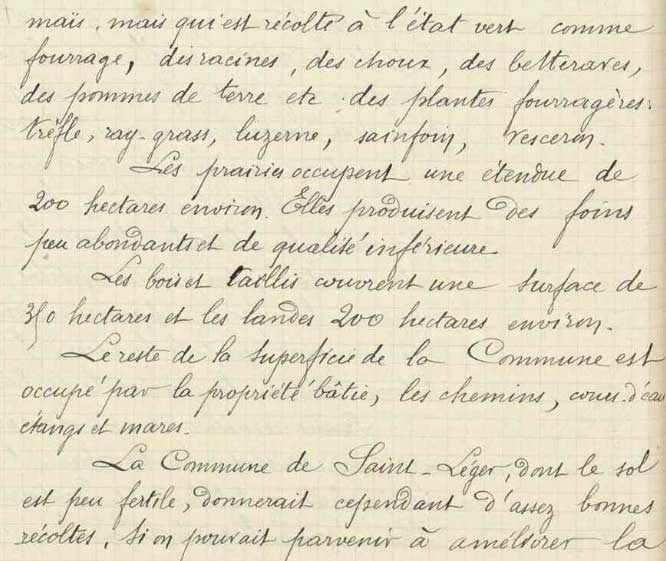 maïs, mais qui est récolté à l'état vert comme
fourrage, des racines, des choux, des betteraves,
des pommes de terre etc. des plantes fourragères:
trèfle, ray-grass, luzerne, sainfoin, vesceron.
Les prairies occupent une étendue de
200 hectares environ. Elles produisent des foins
peu abondants et de qualité inférieure
Les bois et taillis couvrent une surface de
350 hectares et les landes 200 hectares environ.
Le reste de la superficie de la Commune est
occupé par la propriété bâtie, les chemins, cours d'eau
étangs et mares.
La Commune de Saint-Léger, dont le sol
est peu fertile, donnerait cependant d'assez bonnes
récoltes, si on pouvait parvenir à améliorer la